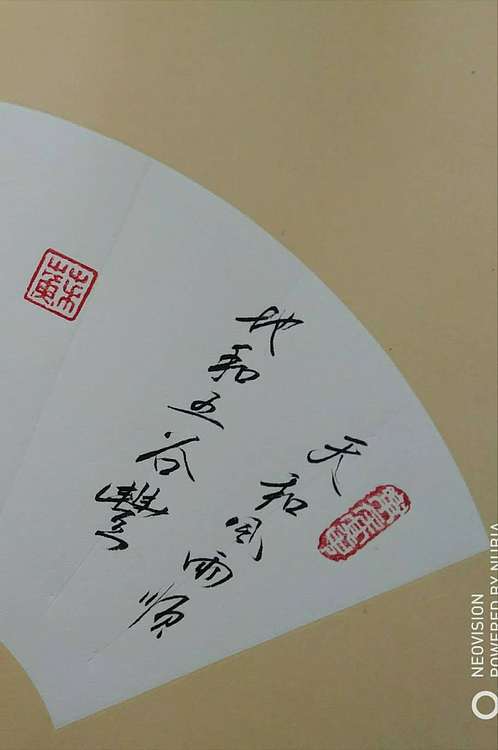 天和風雨顺
地和五谷豐
NEOVISION
POWERED BY NUBIA